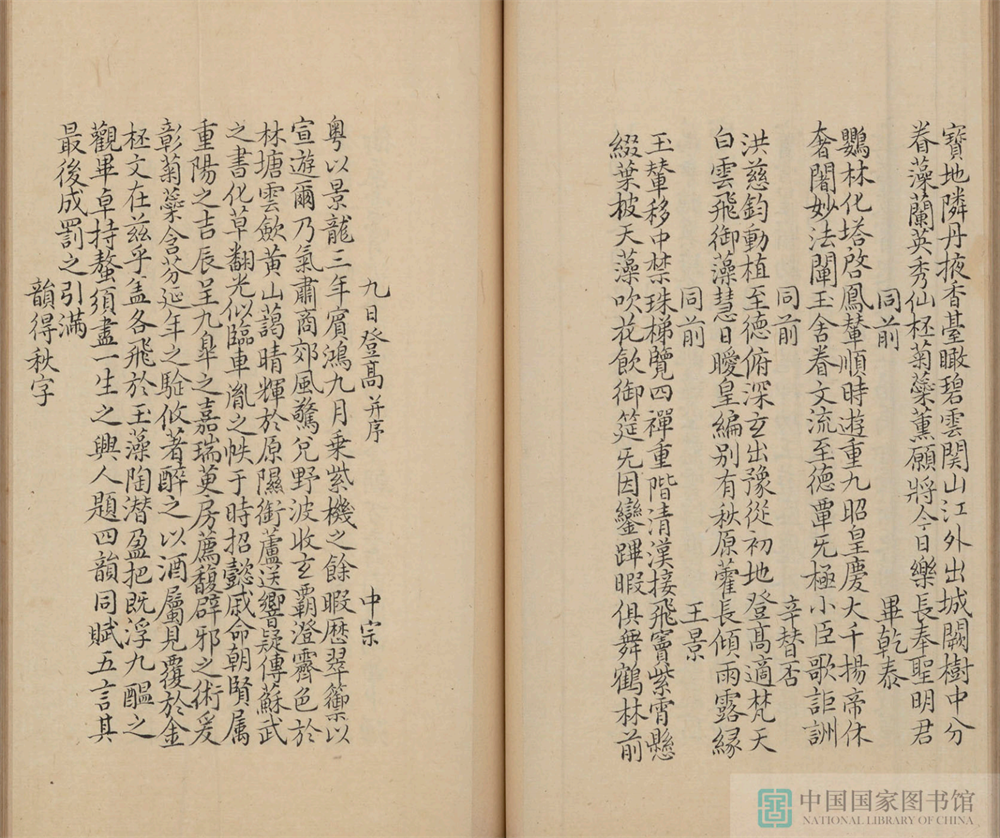 寶地隣丹掖香臺瞰碧雲関山江外出城闕樹中分
眷藻蘭英秀仙柸菊蘂薫願將今日樂長奉聖明君
同前 畢乾泰
鸚林化塔啓鳳輦順時遊重九昭皇慶大千揚帝休
奢闍妙法闡玉舍眷文流至德覃旡極小臣歌詎詶
同前 辛替否
洪慈鈞動植至德俯深玄出豫從初地登髙適梵天
白雲飛御藻慧日曖皇編别有秋原藿長傾雨露縁
同前 王景
玉輦移中禁珠梯覽四禪重階清漢接飛竇紫霄懸
綴葉披天藻吹花飲御筵旡因鑾蹕暇俱舞鶴林前
九日登髙并序 中宗
粤以景龍三年賓鴻九月乗紫機之餘暇歴翠籞以
宣遊爾乃氣肅商郊風驚兌野波收玄霸澄霽色於
林塘雲歛黄山藹晴輝於原隰銜蘆送響疑傳蘇武
之書化草翻光似臨車胤之帙于時招懿戚命朝賢属
重陽之吉辰呈九臯之嘉瑞萸房薦馥辟邪之術爰
彰菊蘂含芬延年之騐攸著醉之以酒屬見覆於金
柸文在兹乎盍各飛於玉藻陶潜盈把既浮九醖之
觀畢卓持螯須盡一生之興人題四韻同賦五言其
最後成罰之引滿
韻得秋字
中国国家图书馆
NATIONAL LIBRARY OF CHINA